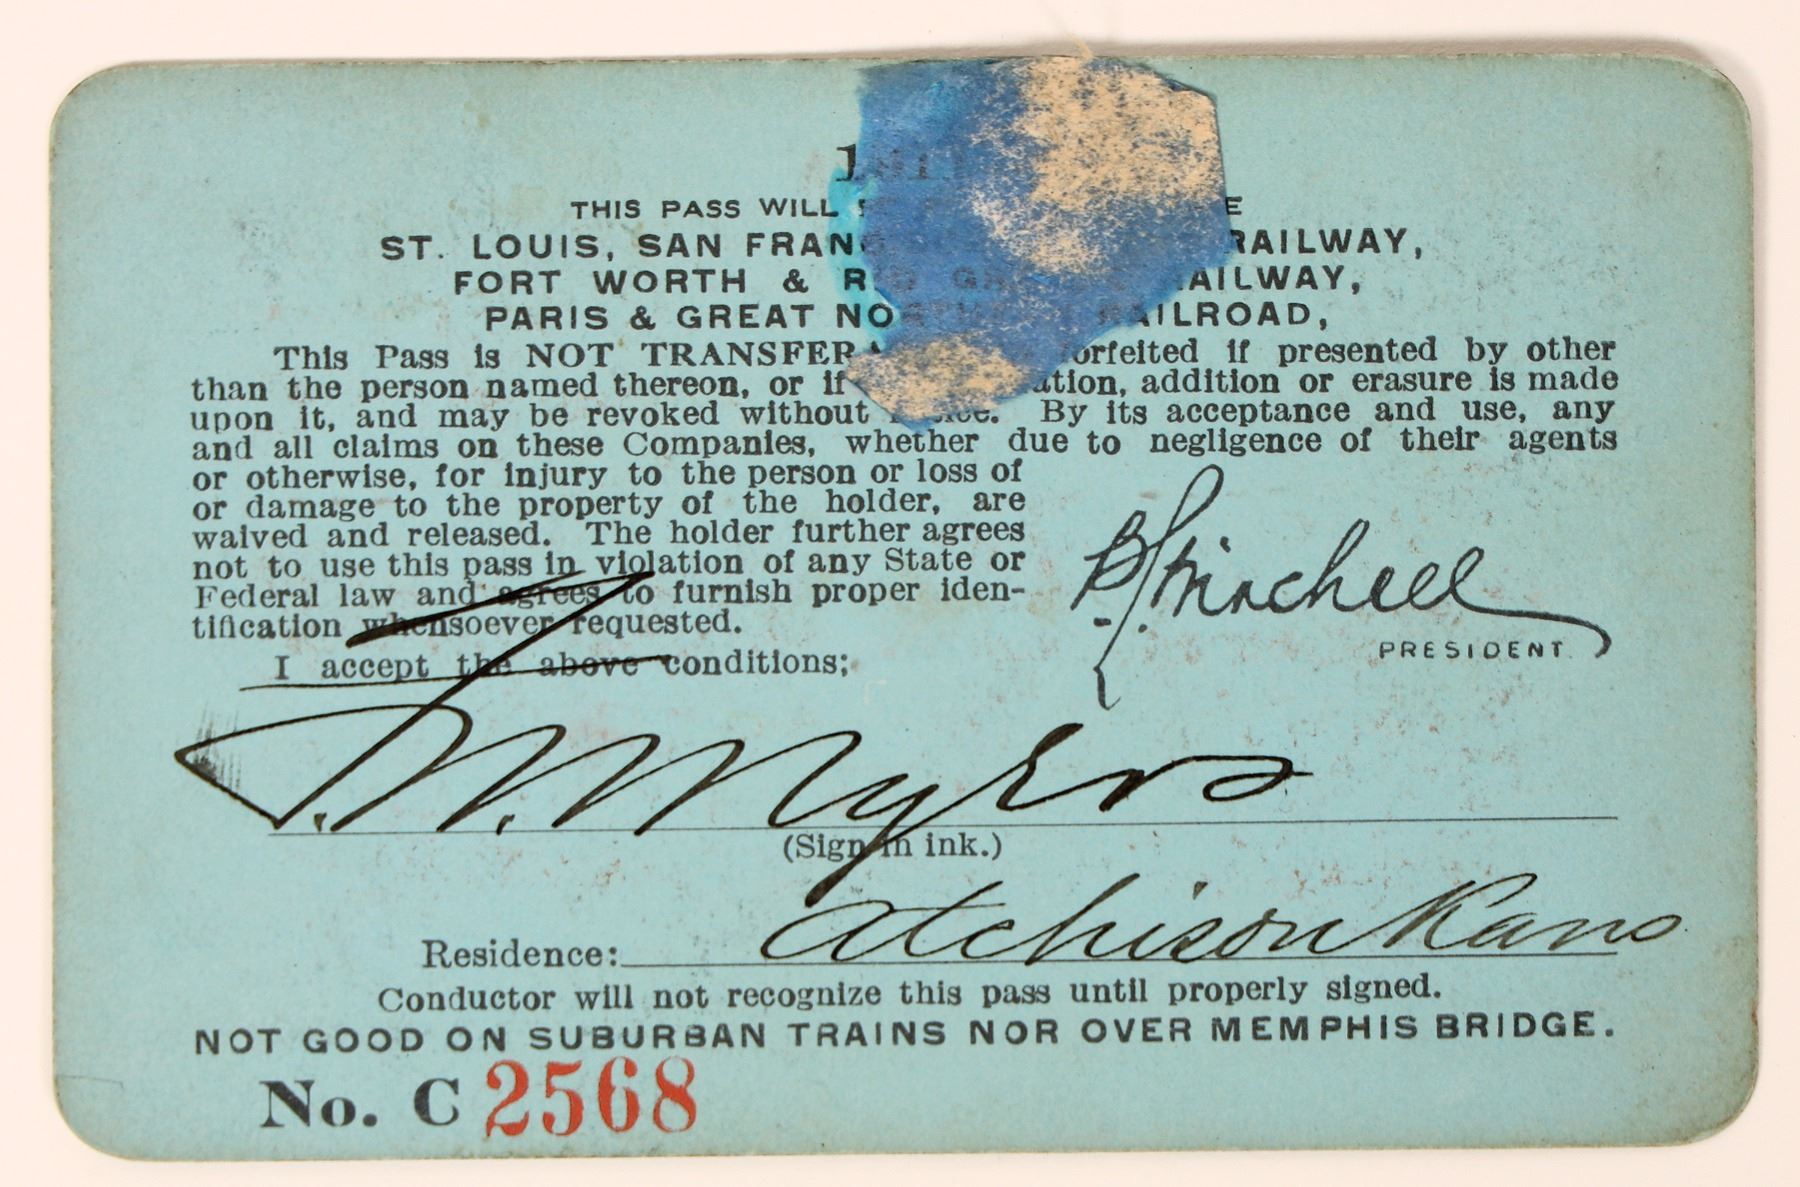 THIS PASS WILL
ST. LOUIS, SAN FRAN RAILWAY,
FORT WORTH & RAILWAY,
PARIS & GREAT RAILROAD,
This Pass is NOT TRANSFER forfeited if presented by other
than the person named thereon, or if addition or erasure is made
upon it, and may be revoked without By its acceptance and use, any
and all claims on these Companies, whether due to negligence of their agents
or otherwise, for injury to the person or loss of
or damage to the property of the holder, are
waived and released. The holder further agrees
not to use this pass in violation of any State or
Federal law and agrees to furnish proper iden-
tification whensoever requested.
PRESIDENT
I accept the above conditions;
Myers
(Sign in ink.)
Residence: Atchison Kans
Conductor will not recognize this pass until properly signed.
NOT GOOD ON SUBURBAN TRAINS NOR OVER MEMPHIS BRIDGE.
No. C 2568